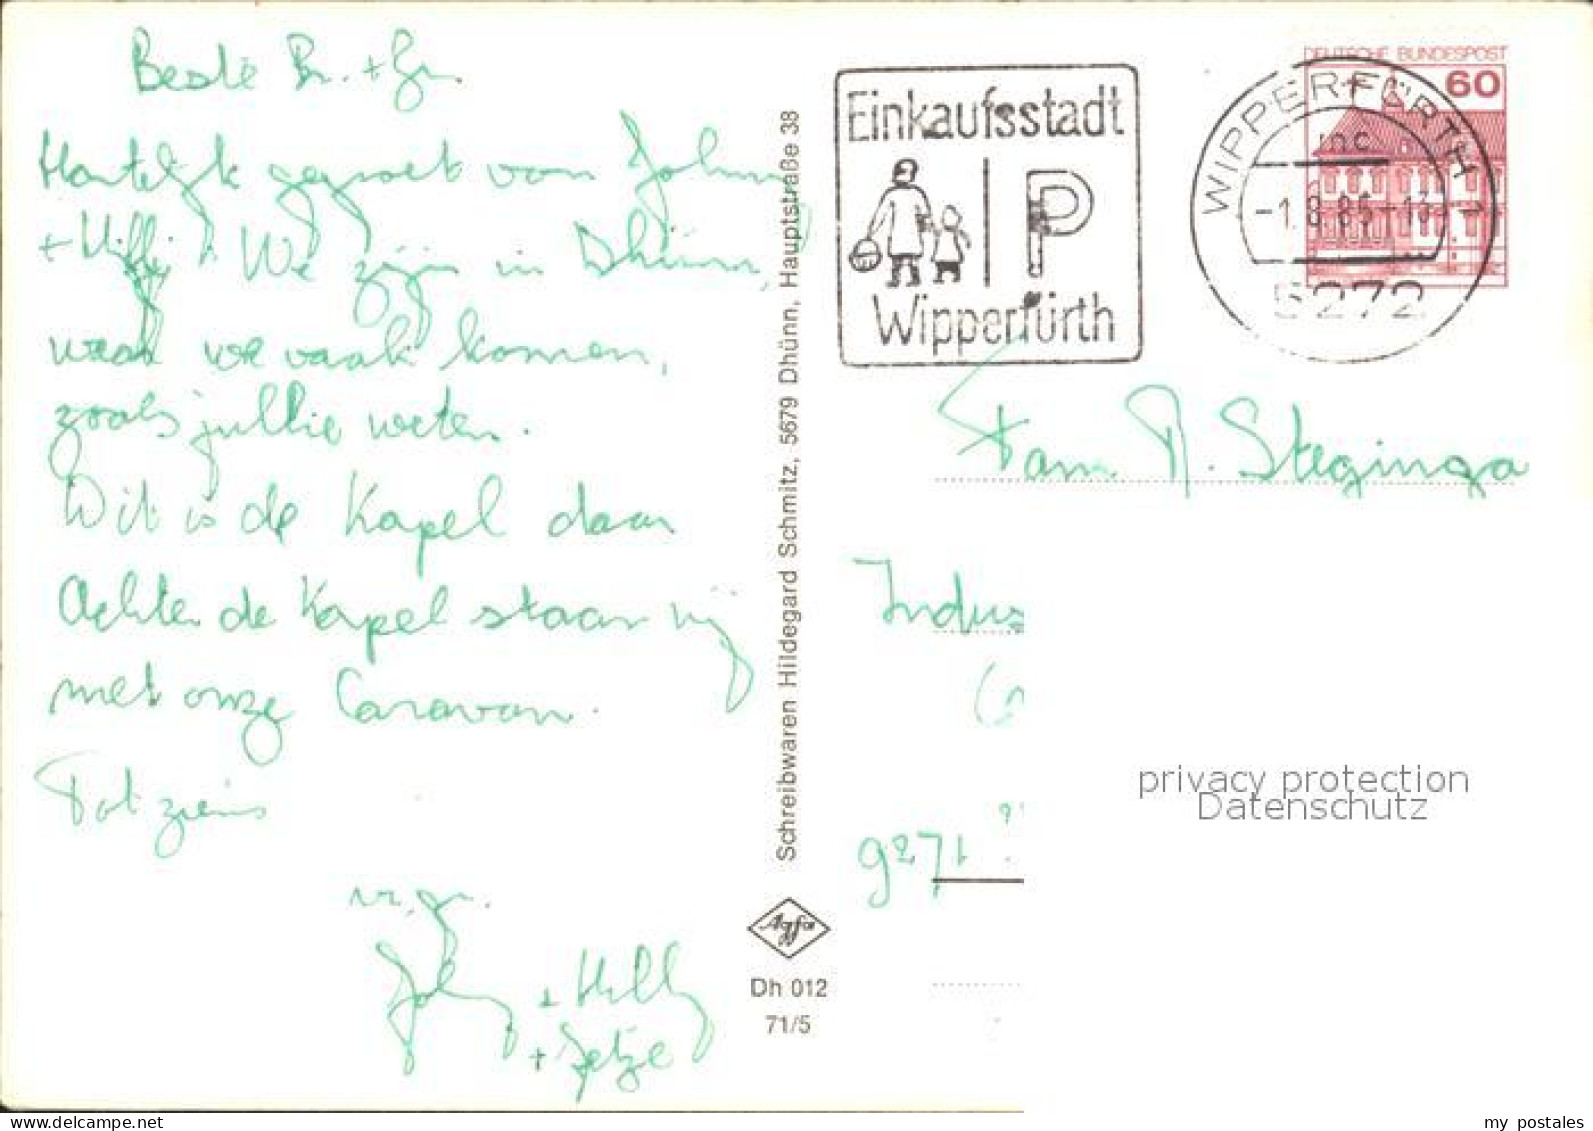 Beste Br. + Gr.
Hartelijk gegroet van Johnny
+ Hilly! We zijn in Dhünn,
waar we vaak komen,
zoals jullie weten.
Dit is de Kapel daar
Achter de Kapel staan wij
met onze Caravan.
Tot ziens
vr. gr.
Johnny + Hilly
+ Jetze
Schreibwaren Hildegard Schmitz, 5679 Dhünn, Hauptstraße 38
Agfa
Dh 012
71/5
Einkaufsstadt
P
Wipperfürth
DEUTSCHE BUNDESPOST
60
WIPPERFÜRTH 1
5272
Fam. R. Steginga
Indus
9271
privacy protection
Datenschutz
my postales
delcampe.net